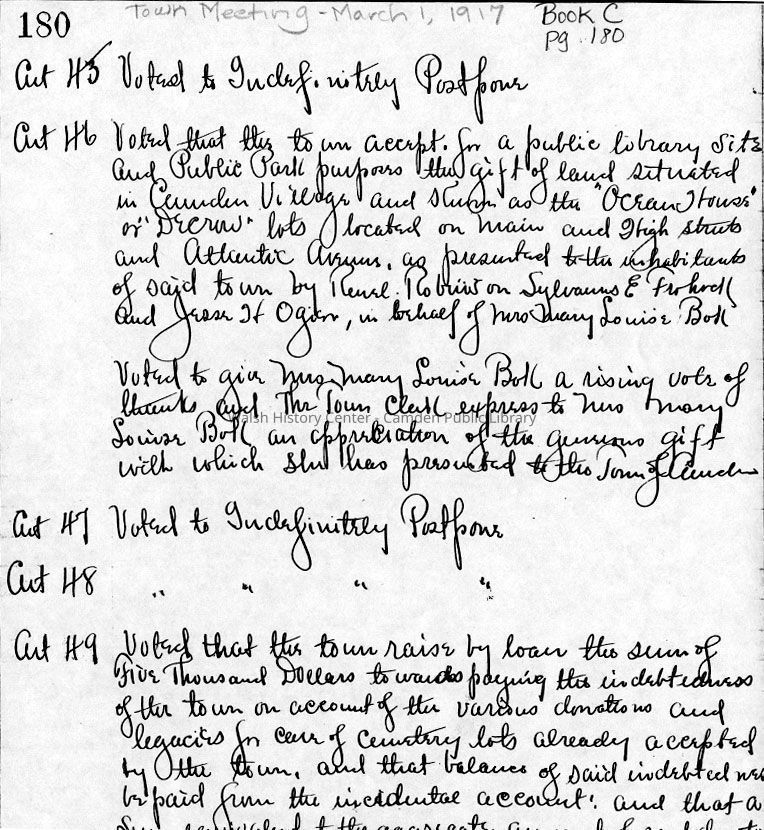 180
Town Meeting - March 1, 1917
Book C
pg. 180
Art 45 Voted to Indefinitely Postpone
Art 46 Voted that the town accept for a public library site
and Public Park purposes the gift of land situated
in Camden Village and known as the "Ocean House"
or "Decrow" lots located on Main and High streets
and Atlantic Avenue, as presented to the inhabitants
of said town by Reuel Robinson Sylvanus E Frohock
and Jesse H Ogier, in behalf of Mrs Mary Louise Bok
Voted to give Mrs Mary Louise Bok a rising vote of
thanks and The Town Clerk express to Mrs Mary
Walsh History Center - Camden Public Library
Louise Bok an appreciation of the generous gift
with which she has presented to the Town of Camden
Art 47 Voted to Indefinitely Postpone
Art 48 " " " "
Art 49 Voted that the town raise by loan the sum of
Five Thousand Dollars towards paying the indebtedness
of the town on account of the various donations and
legacies for care of cemetery lots already accepted
by the town, and that balance of said indebtednes
be paid from the incidental account: and that a